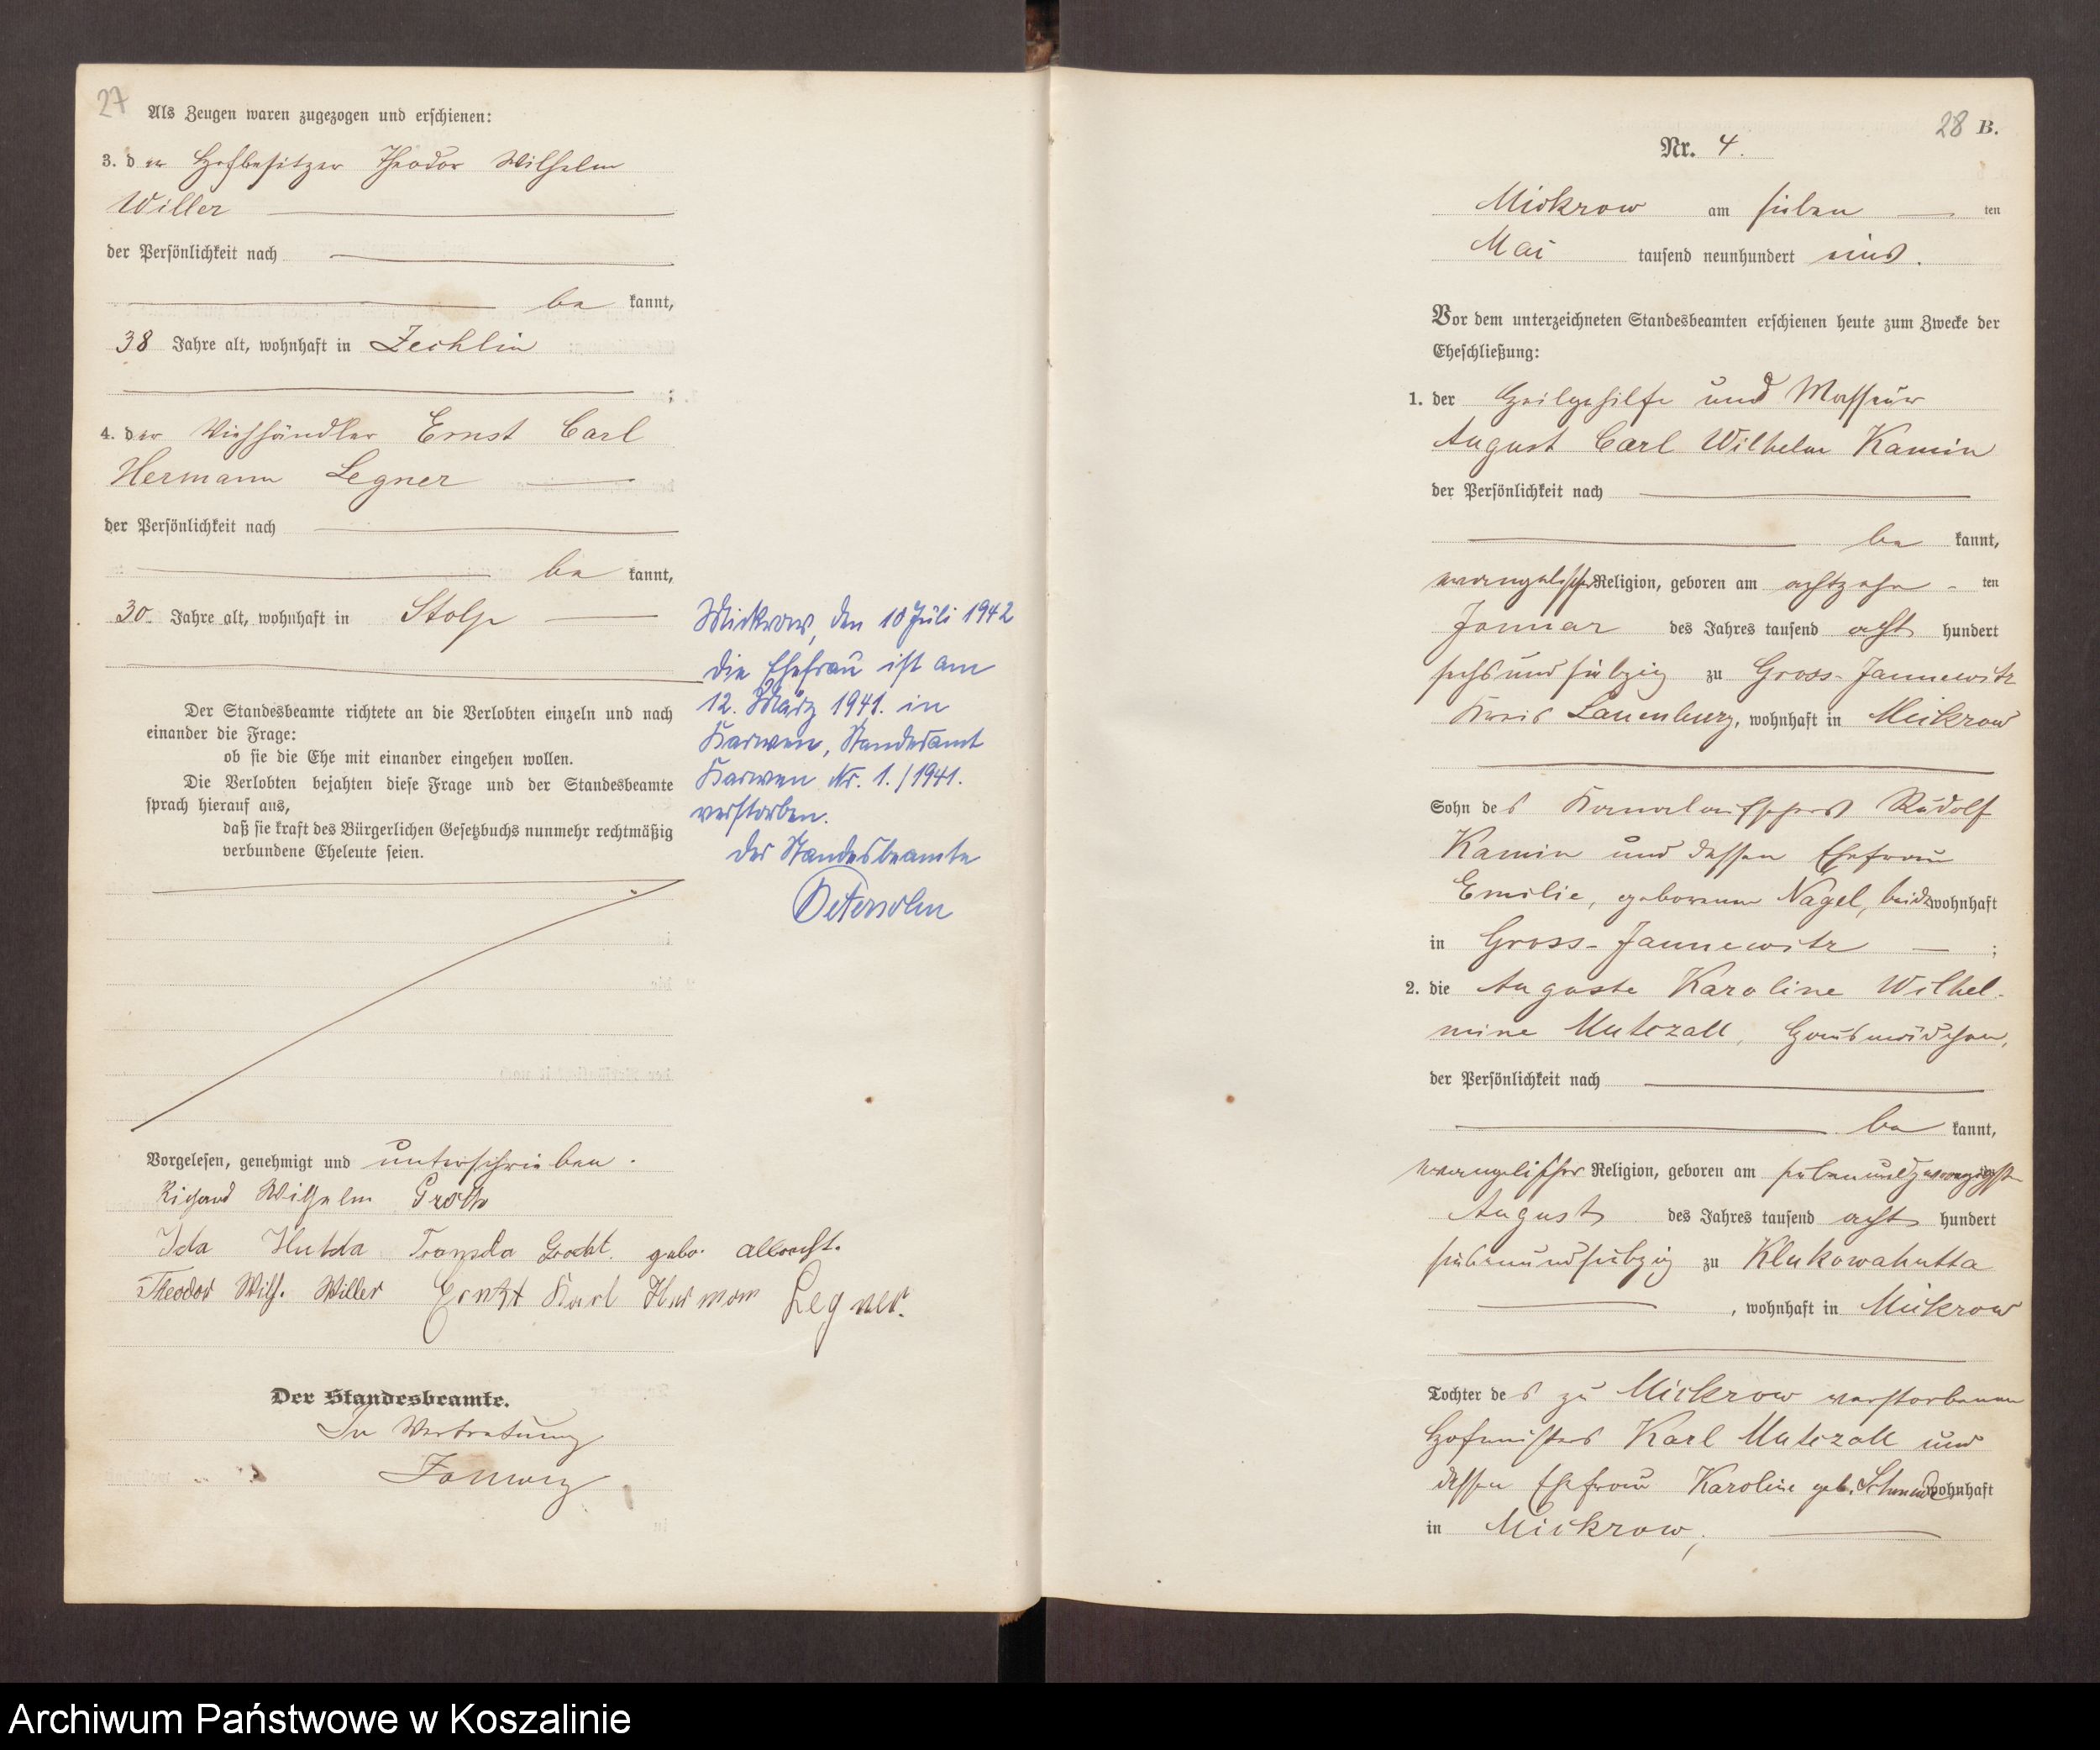 27
Als Zeugen waren zugezogen und erschienen:
3. der Hofbesitzer Theodor Wilhelm
Willer
der Persönlichkeit nach
be kannt,
38 Jahre alt, wohnhaft in Zechlin
;
4. der Viehhändler Ernst Carl
Hermann Legner
der Persönlichkeit nach
be kannt,
30 Jahre alt, wohnhaft in Stolp
Der Standesbeamte richtete an die Verlobten einzeln und nach
einander die Frage:
ob sie die Ehe mit einander eingehen wollen.
Die Verlobten bejahten diese Frage und der Standesbeamte
sprach hierauf aus,
daß sie kraft des Bürgerlichen Gesetzbuchs nunmehr rechtmäßig
verbundene Eheleute seien.
Vorgelesen, genehmigt und unterschrieben.
Richard Wilhelm Groth
Ida Hulda Groth gebo. Albrecht.
Theodor Wilh. Willer Ernst Karl Herman Legner.
Der Standesbeamte.
In Vertretung
Mickrow, den 10 Juli 1942
die Ehefrau ist am
12. März 1941. in
Karwen, Standesamt
Karwen Nr. 1./1941.
verstorben.
der Standesbeamte
28 B.
Nr. 4.
Mickrow am sieben ten
Mai tausend neunhundert eins.
Vor dem unterzeichneten Standesbeamten erschienen heute zum Zwecke der
Eheschließung:
1. der Heilgehilfe und Masseur
August Carl Wilhelm Kamin
der Persönlichkeit nach
be kannt,
evangelischer Religion, geboren am achtzehn ten
Januar des Jahres tausend acht hundert
sechsundsiebzig zu Gross-Jannewitz
Kreis Lauenburg, wohnhaft in Mickrow
Sohn des Kanalaufsehers Rudolf
Kamin und dessen Ehefrau
Emilie, geborenen Nagel, beide wohnhaft
in Gross-Jannewitz ;
2. die Auguste Karoline Wilhel-
mine Mutezall, Hausmädchen,
der Persönlichkeit nach
be kannt,
evangelischer Religion, geboren am siebenundzwanzigsten
August des Jahres tausend acht hundert
siebenundsiebzig zu Klukowahutta
, wohnhaft in Mickrow
Tochter des zu Mickrow verstorbenen
Hofmeisters Karl Mutezall und
dessen Ehefrau Karoline geb. wohnhaft
in Mickrow,
Archiwum Państwowe w Koszalinie